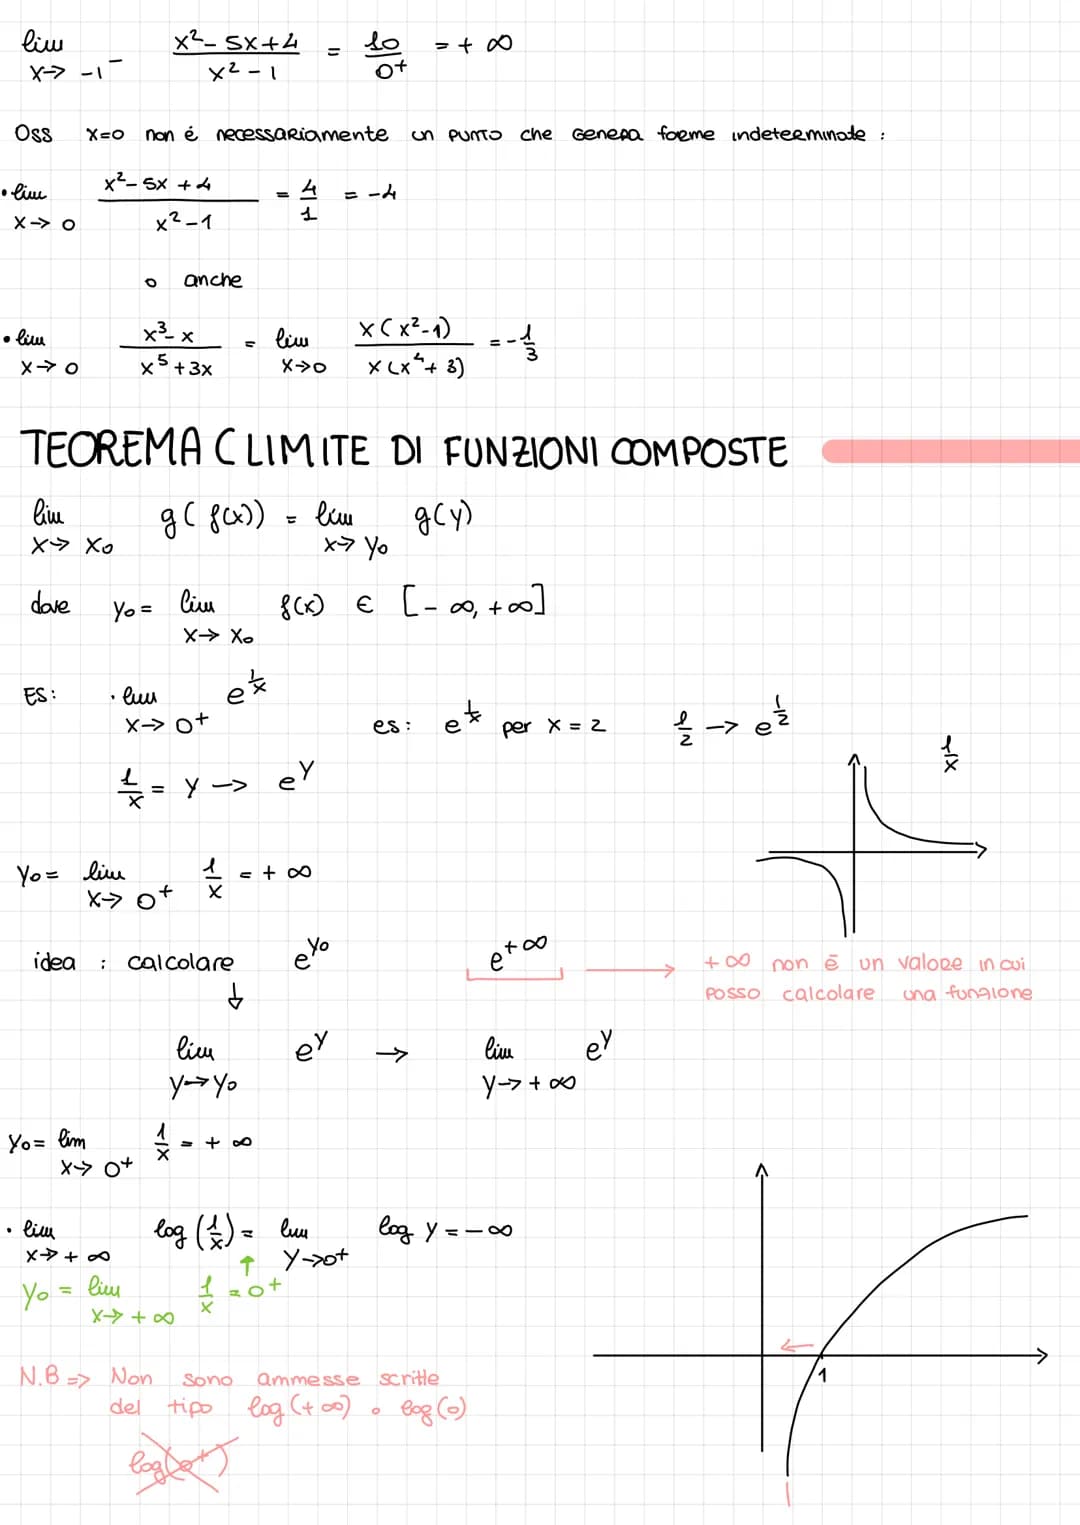 lim x→ -1⁻ x²- 5x+4 / x² - 1 = 10/0+ = + ∞
OSS x=0 non é necessariamente un punto che genera forme indeterminate :
• lim x→ 0 x²- 5x + 4 / x² - 1 = 4/1 = -4
o anche
• lim x→ 0 x³- x / x⁵ + 3x = lim x→0 x ( x²-1) / x (x⁴+ 3) = - 1/3
TEOREMA ( LIMITE DI FUNZIONI COMPOSTE
lim x→ x₀ g ( f(x)) = lim x→ y₀ g(y)
dove y₀ = lim x→ x₀ f(x) ∈ [- ∞, +∞]
ES: · lim x→ 0+ e^1/x es: e^1/x per x = 2 1/2 -> e^1/2
1/x
1/x = y -> e^y
y₀ = lim x→ 0+ 1/x = + ∞
idea : calcolare e^y₀ e^+∞ → +∞ non é un valore in cui
posso calcolare una funzione
↓
lim y→y₀ e^y → lim y→ + ∞ e^y
y₀= lim x→ 0+ 1/x = + ∞
· lim x→ + ∞ log (1/x) = lim y→0+ log y = -∞
↑
y₀ = lim x→ +∞ 1/x = 0+
1
N.B => Non sono ammesse scritte
del tipo log (+∞) o log (0)
log(0+)